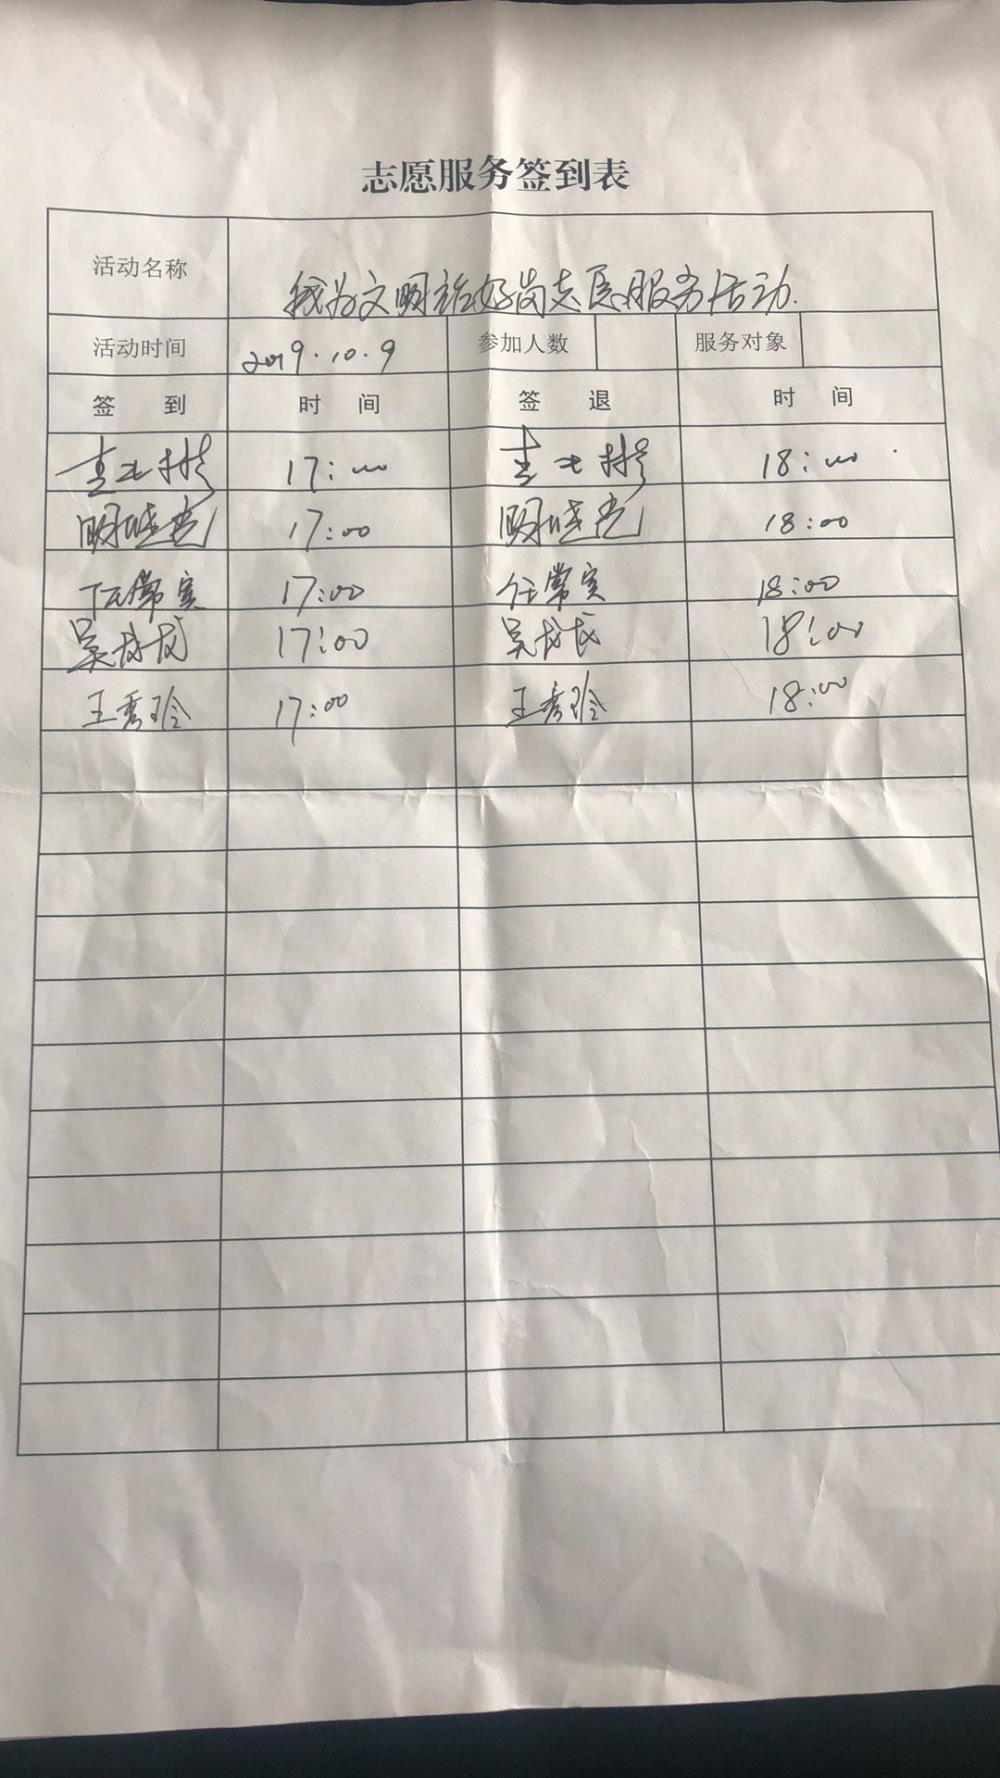 志愿服务签到表
活动名称 我为文明站好岗志愿服务活动.
活动时间 2019.10.9 参加人数 服务对象
签到 时间 签退 时间
17:00 18:00
17:00 18:00
任常实 17:00 任常实 18:00
吴成龙 17:00 吴成龙 18:00
王秀玲 17:00 王秀玲 18:00